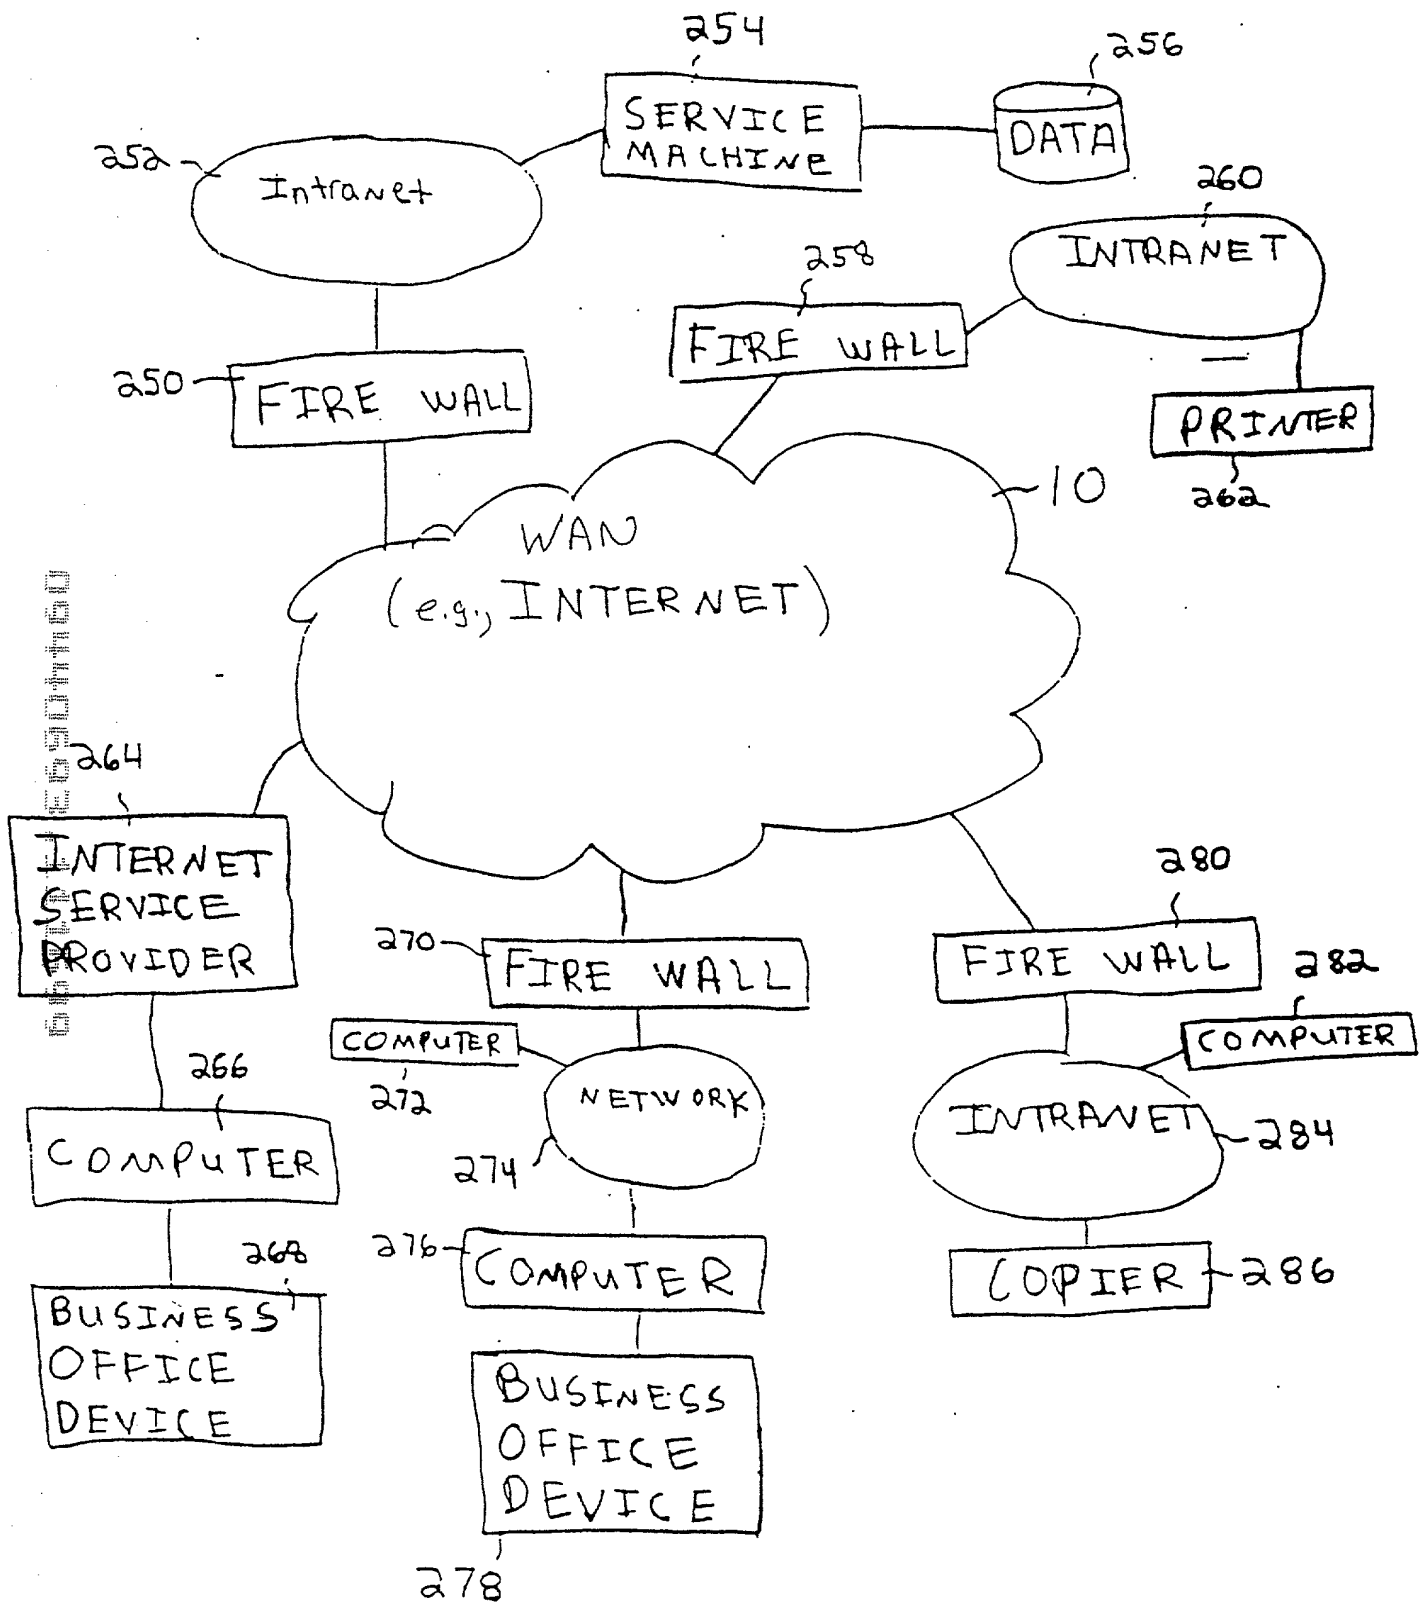 254
256
SERVICE
MACHINE
DATA
252
Intranet
260
INTRANET
258
FIRE WALL
250
FIRE WALL
PRINTER
262
10
WAN
(e.g., INTERNET)
264
INTERNET
SERVICE
PROVIDER
280
270
FIRE WALL
FIRE WALL
282
COMPUTER
COMPUTER
272
266
NETWORK
INTRANET
284
COMPUTER
274
276
COMPUTER
268
COPIER
286
BUSINESS
OFFICE
DEVICE
BUSINESS
OFFICE
DEVICE
278